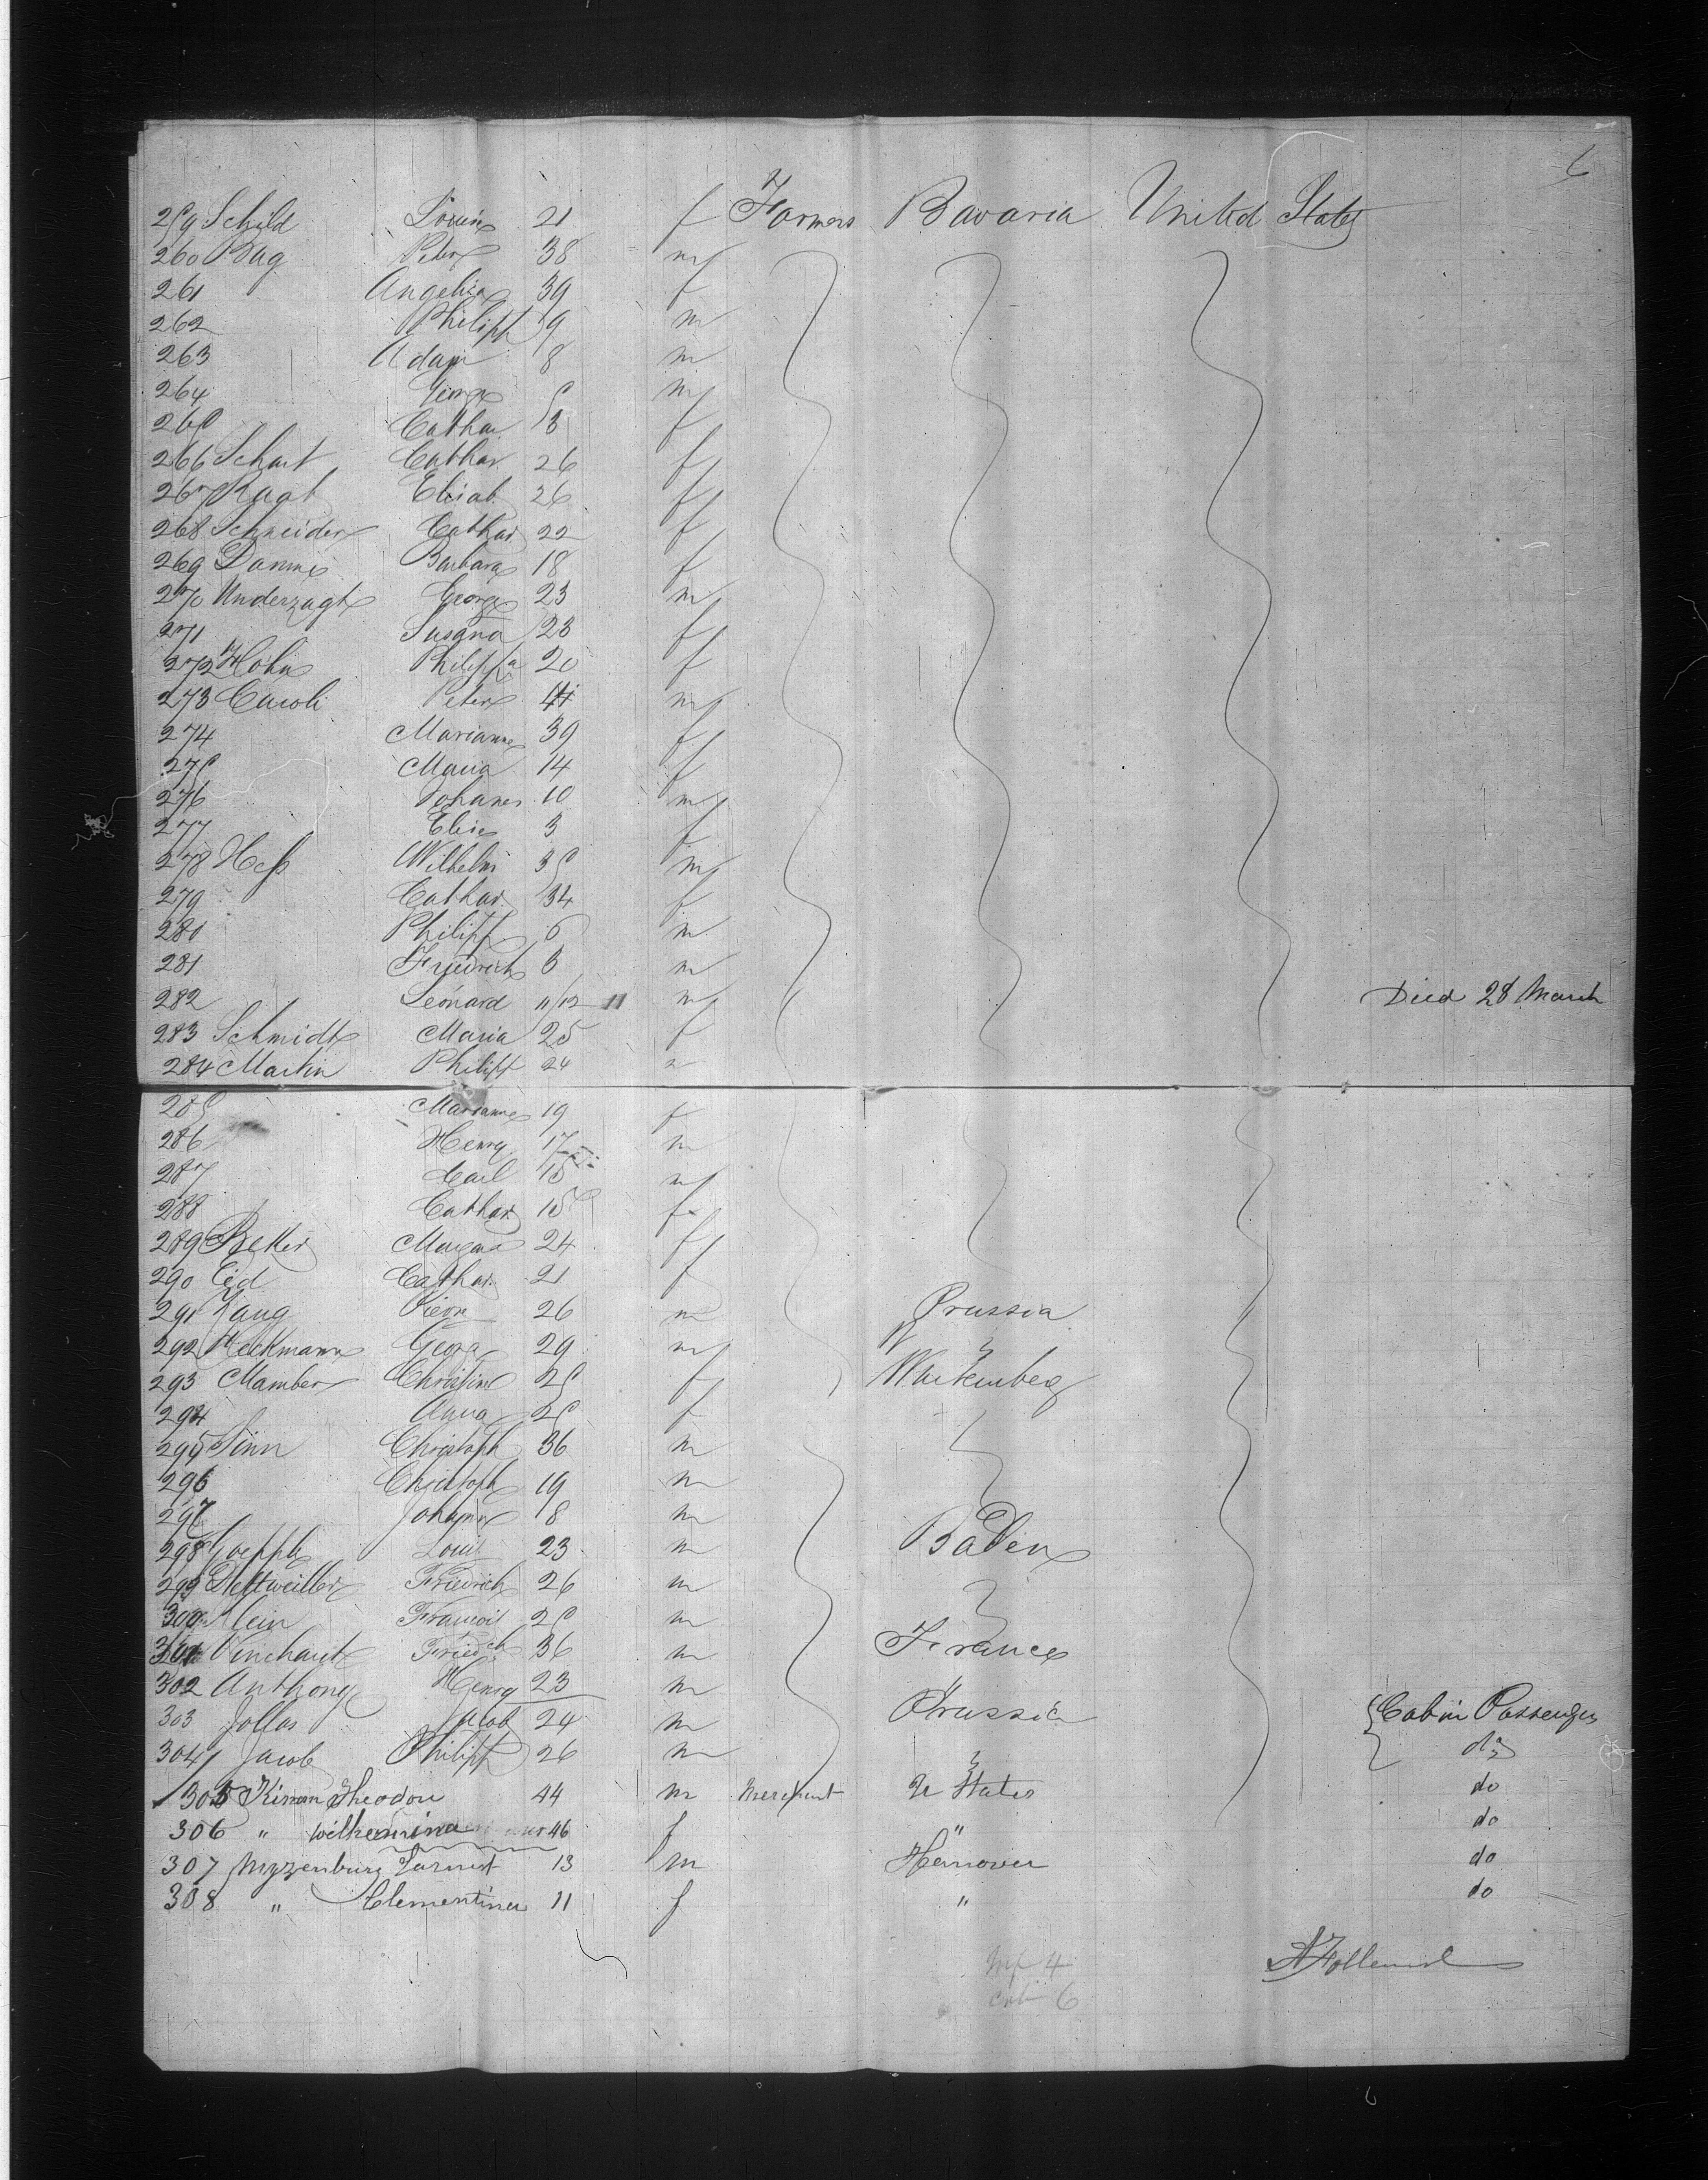 6
259 Schild Louise 21 f Farmers Bavaria United States
260 Bug Peter 38 m
261 Angelica 39 f
262 Philipp 9 m
263 Adam 8 m
264 George 5 m
265 Cathar. 3 f
266 Schart Cathar. 26 f
267 Elisab. 26 f
268 Schneider Cathar. 22 f
269 Damm Barbara 18 f
270 Underzagt George 23 m
271 Susana 23 f
272 Hohn Philippa 20 f
273 Caroli Peter 41 m
274 Marianne 39 f
275 Maria 14 f
276 Johanes 10 m
277 Elise 3 f
278 Heß Wilhelm 35 m
279 Cathar. 34 f
280 Philipp 6 m
281 Friedrich 3 m
282 Leonard 11/12 11 m Died 28 March
283 Schmidt Maria 25 f
284 Martin Philipp 24
285 Marianne 19 f
286 Henry 17 m
287 Carl 15 m
288 Cathar 15 f
289 Beker Margar 24 f
290 Eid Cathar. 21 f
291 Zaug Pierre 26 m Prussia
292 Heckmann Georg 29 m
293 Mamber Christine 25 f Wurtemberg
294 Anna 25 f
295 Sinn Christoph 36 m
296 Christoph 19 m
297 Johann 18 m
298 Goepple Louis 23 m Baden
299 Dettweiller Friedrich 26 m
300 Klein François 25 m
301 Friedch 36 m France
302 Anthony Henry 23 m
303 Jollas Jacob 24 m Prussia Cabin Passenger
304 Jacob Philipp 26 m do
305 Kirman Theodore 44 m Merchant U States do
306 " Wilhemina 46 f " do
307 Myzenburg Earnest 13 m Hanover do
308 " Clementina 11 f " do
4
cab 6